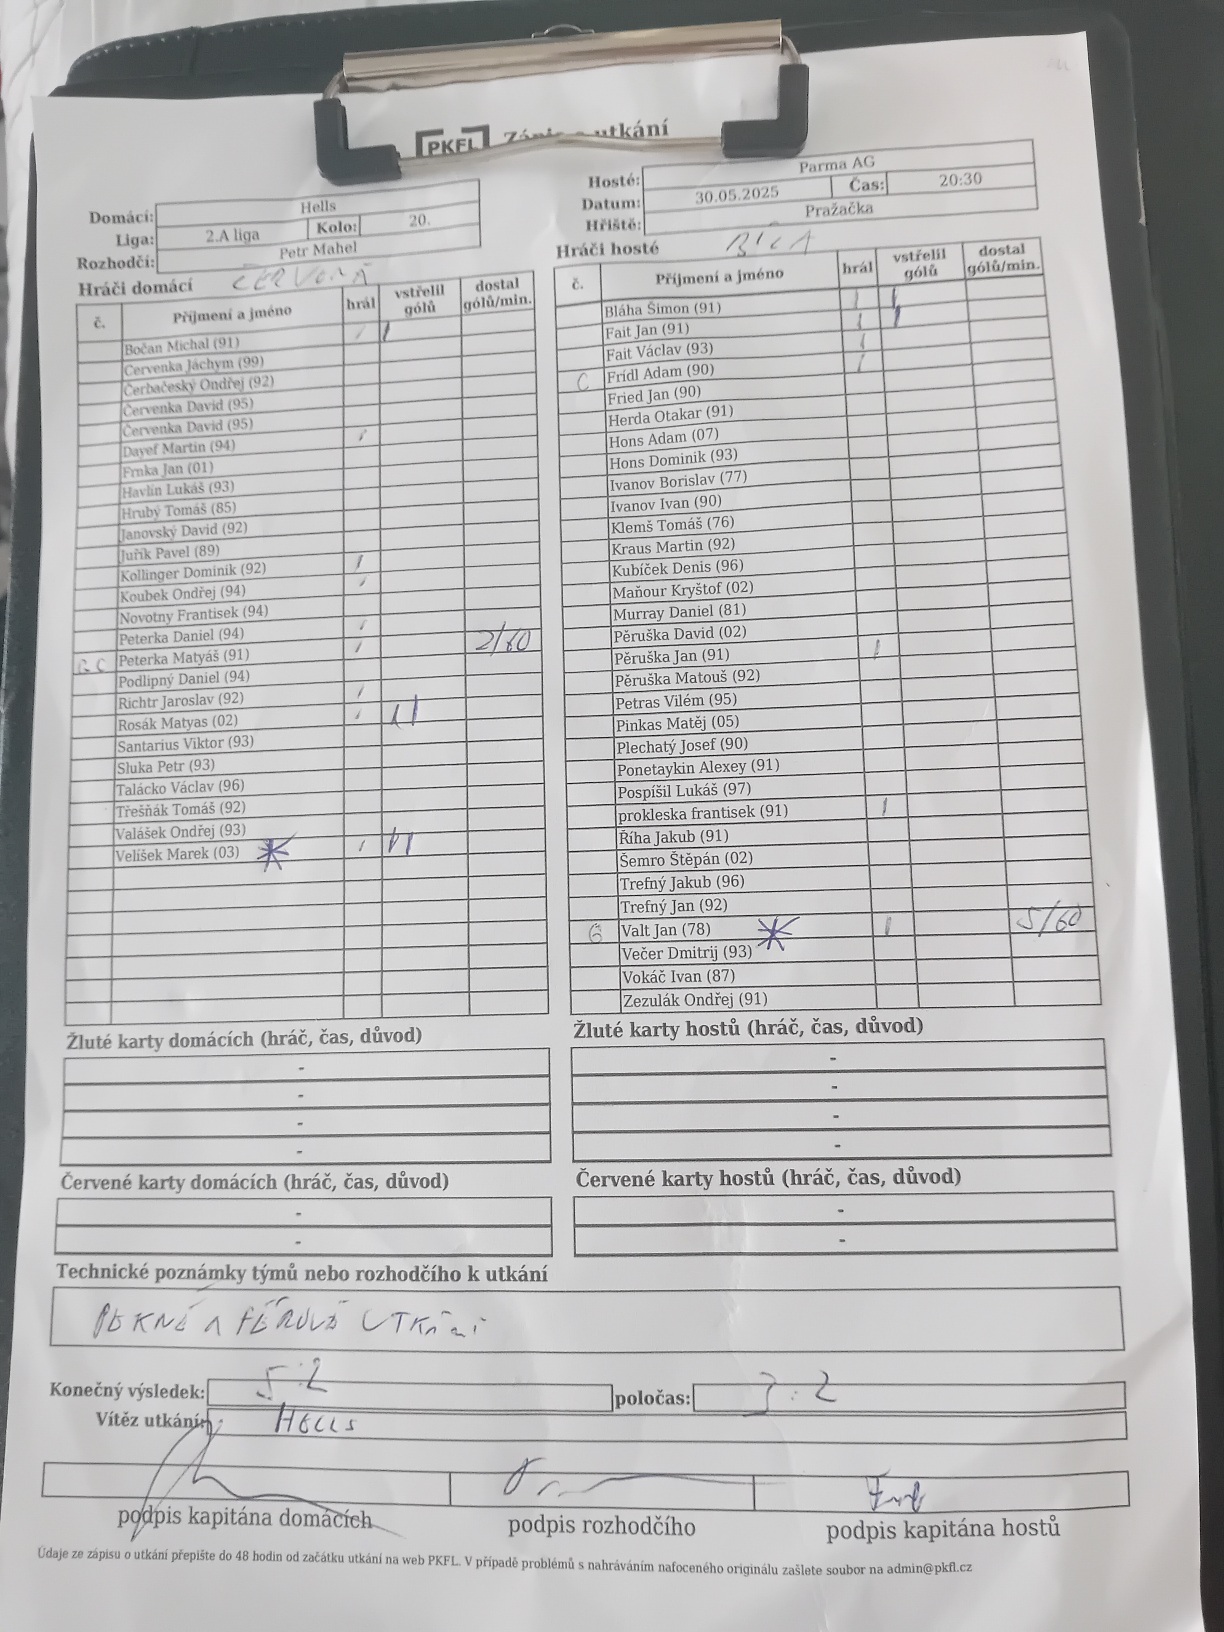 PKFL Zápis o utkání
Domácí: Hells
Liga: 2.A liga Kolo: 20.
Rozhodčí: Petr Mahel
Hosté: Parma AG
Datum: 30.05.2025 Čas: 20:30
Hřiště: Pražačka
Hráči domácí ČERVENÁ
č. Příjmení a jméno hrál vstřelil gólů dostal gólů/min.
Bočan Michal (91) / /
Červenka Jáchym (99)
Čerbačeský Ondřej (92)
Červenka David (95)
Červenka David (95)
Dayef Martin (94) /
Frnka Jan (01)
Havlín Lukáš (93)
Hrubý Tomáš (85)
Janovský David (92)
Juřík Pavel (89)
Kollinger Dominik (92) /
Koubek Ondřej (94) /
Novotny Frantisek (94)
Peterka Daniel (94) /
GC Peterka Matyáš (91) / 2/60
Podlipný Daniel (94)
Richtr Jaroslav (92) /
Rosák Matyas (02) / //
Santarius Viktor (93)
Sluka Petr (93)
Talácko Václav (96)
Třešňák Tomáš (92)
Valášek Ondřej (93)
Velíšek Marek (03) * / //
Hráči hosté BÍLÁ
č. Příjmení a jméno hrál vstřelil gólů dostal gólů/min.
Bláha Šimon (91) / /
Fait Jan (91) / /
Fait Václav (93) /
C Frídl Adam (90) /
Fried Jan (90)
Herda Otakar (91)
Hons Adam (07)
Hons Dominik (93)
Ivanov Borislav (77)
Ivanov Ivan (90)
Klemš Tomáš (76)
Kraus Martin (92)
Kubíček Denis (96)
Maňour Kryštof (02)
Murray Daniel (81)
Pěruška David (02)
Pěruška Jan (91) /
Pěruška Matouš (92)
Petras Vilém (95)
Pinkas Matěj (05)
Plechatý Josef (90)
Ponetaykin Alexey (91)
Pospíšil Lukáš (97)
prokleska frantisek (91) /
Říha Jakub (91)
Šemro Štěpán (02)
Trefný Jakub (96)
Trefný Jan (92)
G Valt Jan (78) * / 5/60
Večer Dmitrij (93)
Vokáč Ivan (87)
Zezulák Ondřej (91)
Žluté karty domácích (hráč, čas, důvod)
-
-
-
-
Žluté karty hostů (hráč, čas, důvod)
-
-
-
-
Červené karty domácích (hráč, čas, důvod)
-
-
Červené karty hostů (hráč, čas, důvod)
-
-
Technické poznámky týmů nebo rozhodčího k utkání
PEKNÉ A FÉROVÉ UTKÁNÍ
Konečný výsledek: 5:2 poločas: 3:2
Vítěz utkání: HELLS
podpis kapitána domácích podpis rozhodčího podpis kapitána hostů
Údaje ze zápisu o utkání přepište do 48 hodin od začátku utkání na web PKFL. V případě problémů s nahráváním nafoceného originálu zašlete soubor na admin@pkfl.cz